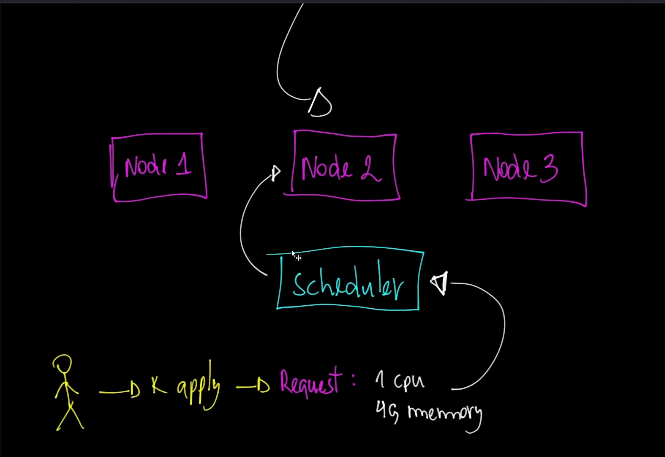 Node 1
Node 2
Node 3
Scheduler
K apply
Request: 1 cpu
4G memory